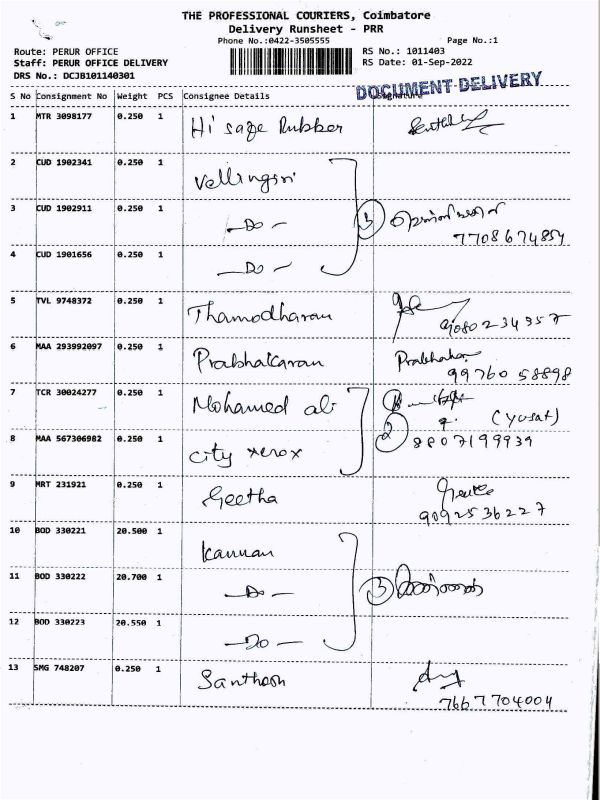 THE PROFESSIONAL COURIERS, Coimbatore
Delivery Runsheet - PRR
Phone No.:0422-3505555 Page No.:1
Route: PERUR OFFICE RS No.: 1011403
Staff: PERUR OFFICE DELIVERY RS Date: 01-Sep-2022
DRS No.: DCJB101140301
DOCUMENT DELIVERY
S No Consignment No Weight PCS Consignee Details Signature
1 MTR 3098177 0.250 1 Hi sage Rubber
2 CUD 1902341 0.250 1 Vellingiri
3 CUD 1902911 0.250 1 —Do— 3
7708674854
4 CUD 1901656 0.250 1 —Do—
5 TVL 9748372 0.250 1 Thamodharan
9080234357
6 MAA 293992097 0.250 1 Prabhakaran Prabhakar
99760 58898
7 TCR 30024277 0.250 1 Mohamed ali
(Yusaf)
8 MAA 567306982 0.250 1 City xerox 2 8807199939
9 MRT 231921 0.250 1 Geetha Geetha
9092536227
10 BOD 330221 20.500 1 Kannan
11 BOD 330222 20.700 1 —Do— 3
12 BOD 330223 20.550 1 —Do—
13 SMG 748207 0.250 1 Santhosh
7667704004